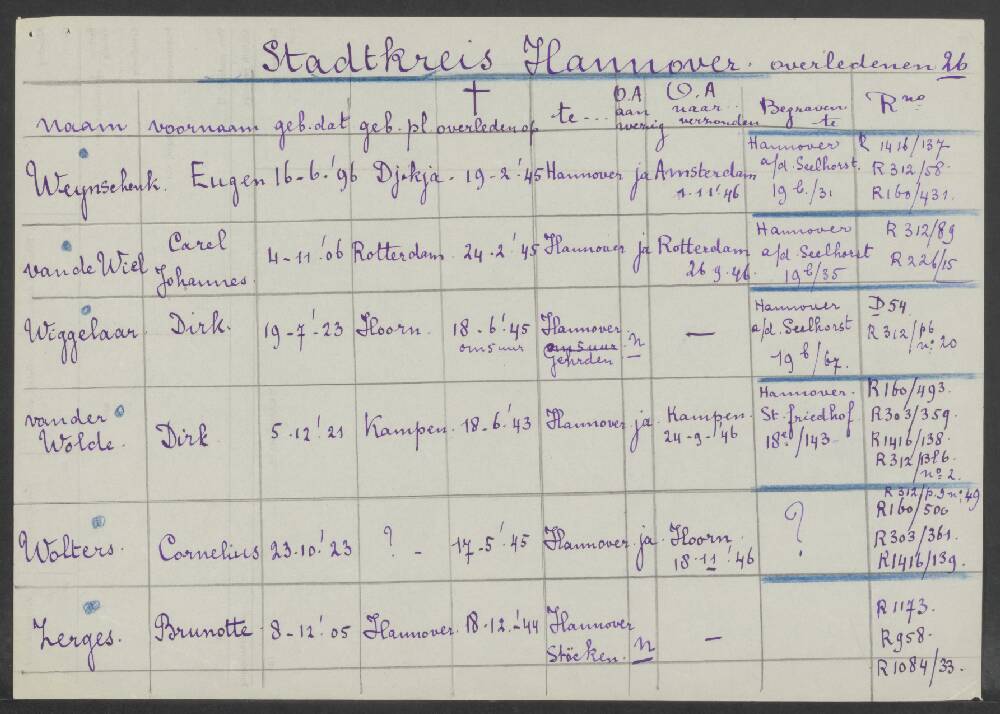 Stadtkreis Hannover. overledenen 26
naam voornaam geb.dat geb.pl † overleden op te --- O.A aan wezig O.A naar verzonden Begraven te R no
Weynschenk. Eugen 16-6-'96 Djokja - 19-2-'45 Hannover ja Amsterdam 1-11-'46 Hannover a/d. Seelhorst. 19 b./31 R 1416/137. R 312/58. R160/431.
van de Wiel Carel Johannes. 4-11-'06 Rotterdam. 24-2-'45 Hannover ja Rotterdam 26 9-46. Hannover a/d Seelhorst 19 b/35 R 312/89 R 226/15
Wiggelaar. Dirk. 19-7-'23 Hoorn. 18-6-'45 om 5 uur Hannover. om 5 uur Gehrden n — Hannover a/d. Seelhorst 19 b/67. D 54. R 312/p6 no. 20
van der Wolde. Dirk 5-12-'21 Kampen. 18-6-'43 Hannover. ja. Kampen. 24-9-'46 Hannover. St. friedhof 18 /143. R160/493. R303/359. R1416/138. R312/ no. 2.
Wolters. Cornelius 23-10-'23 ? - 17-5-'45 Hannover. ja. Hoorn. 18-11-'46 ? R 312/p.9 no. 49 R160/500 R303/361. R1416/139.
Zerges. Brunotte 8-12-'05 Hannover. 18-12-'44 Hannover Stöcken. n — R1173. R958. R1084/33.